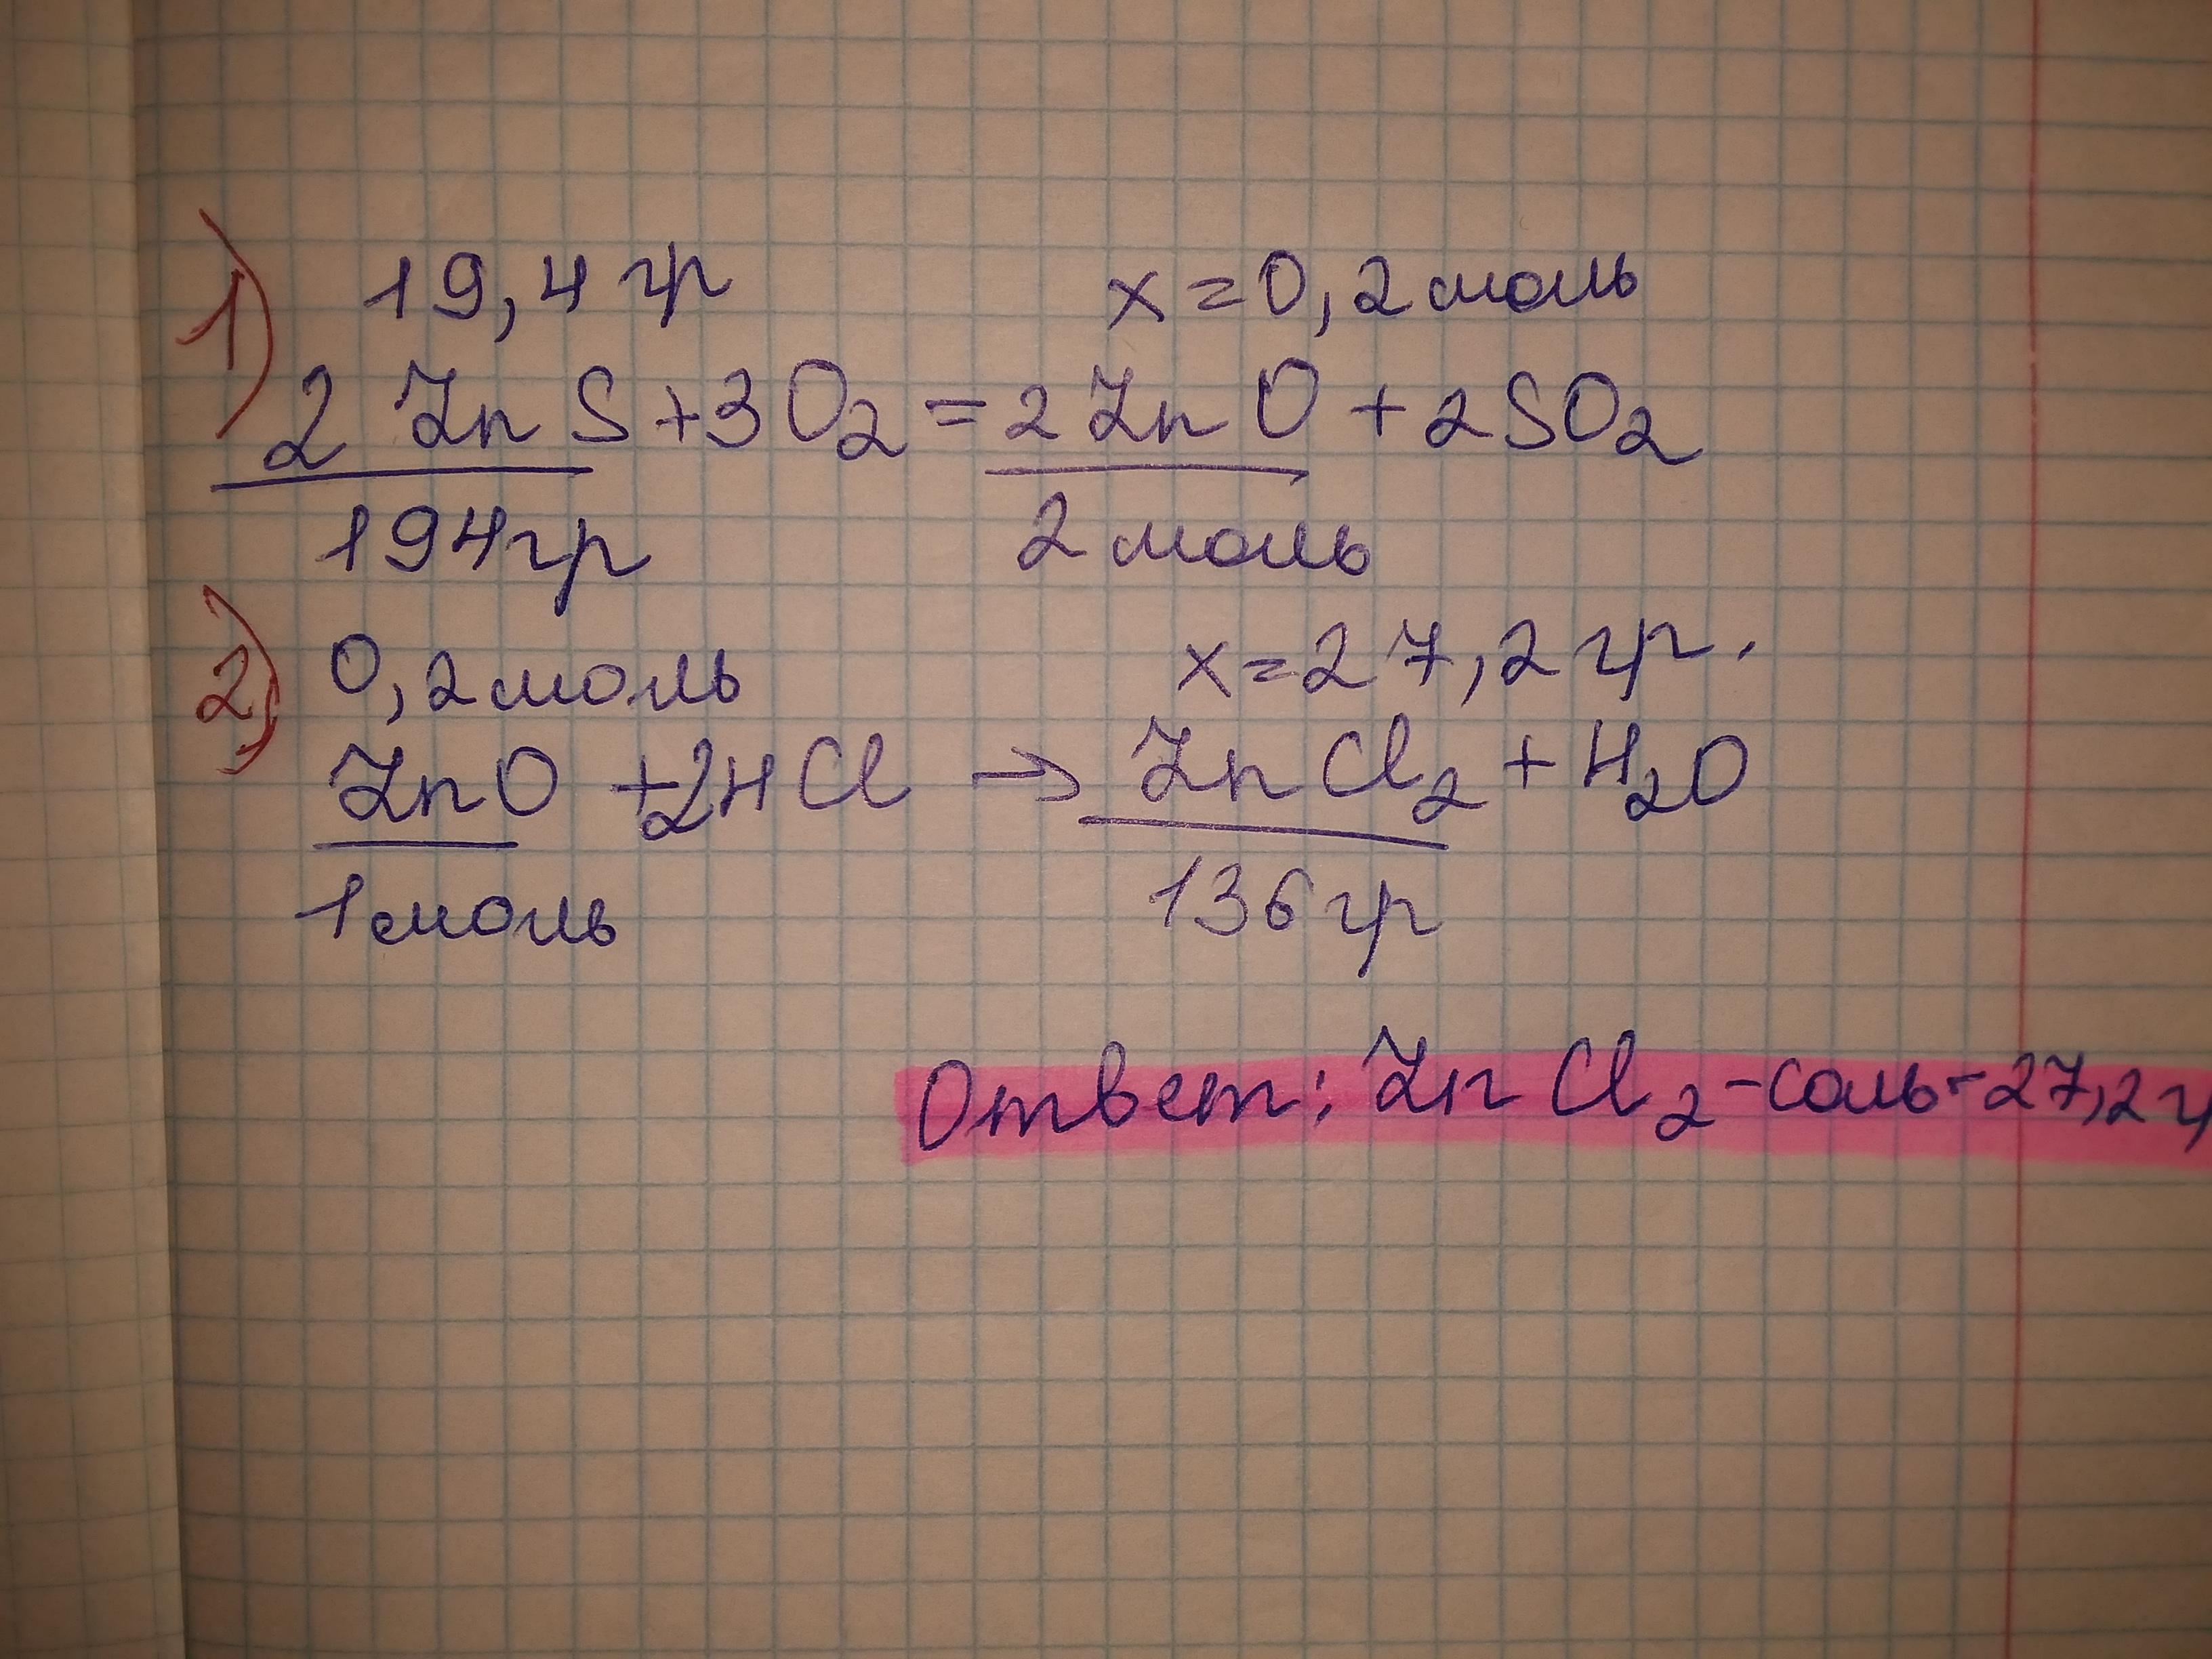 1) 19,4 гр x=0,2 моль
2 ZnS+3O₂=2 ZnO+2SO₂
194гр 2 моль
2) 0,2моль x=27,2 гр.
ZnO +2HCl → ZnCl₂+H₂O
1моль 136гр
Ответ: ZnCl₂-соль-27,2 г